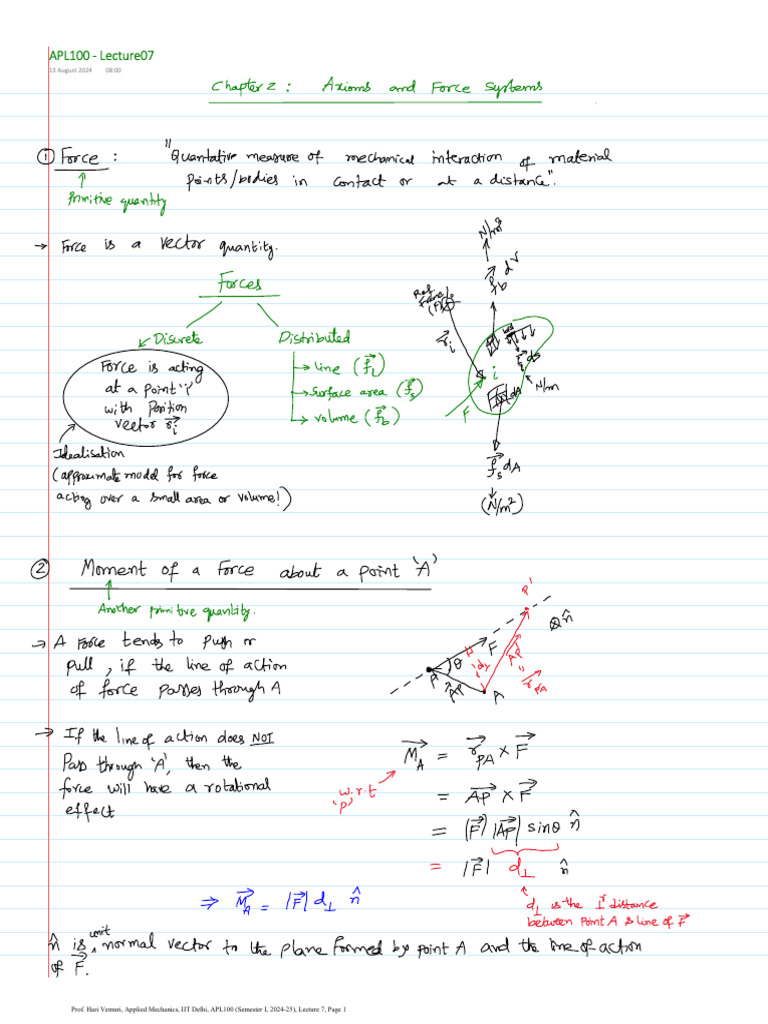 APL100 - Lecture07
13 August 2024 08:00
Chapter 2 : Axioms and Force Systems
① Force : "Quantative measure of mechanical interaction of material
points/bodies in contact or at a distance".
Primitive quantity
→ Force is a vector quantity.
Forces
Discrete
Distributed
Force is acting
at a point 'i'
with Position
vector r⃗i
→ line (f⃗L)
→ surface area (f⃗s)
→ volume (f⃗b)
Idealisation
(approximate model for force
acting over a small area or volume!)
N/m³
f⃗b dV
Ref.
frame
(F)
r⃗i
i
F
N/m
dA
f⃗s dA
(N/m²)
② Moment of a Force about a point 'A'
Another primitive quantity.
→ A Force tends to push or
pull, if the line of action
of force passes through A
P'
⊗ n̂
F
θ
d⊥
P
AP
A
AP
"
r⃗PA
→ If the line of action does NOT
Pass through 'A', then the
force will have a rotational
effect
M⃗A = r⃗PA × F⃗
w.r.t
'P'
= AP⃗ × F⃗
= |F⃗| |AP⃗| sinθ n̂
= |F⃗| d⊥ n̂
⇒ M⃗A = |F⃗| d⊥ n̂
d⊥ is the ⊥r distance
between point A & line of F⃗
n̂ is unit normal vector to the plane formed by point A and the line of action
of F⃗.
Prof. Hari Vemuri, Applied Mechanics, IIT Delhi, APL100 (Semester I, 2024-25), Lecture 7, Page 1